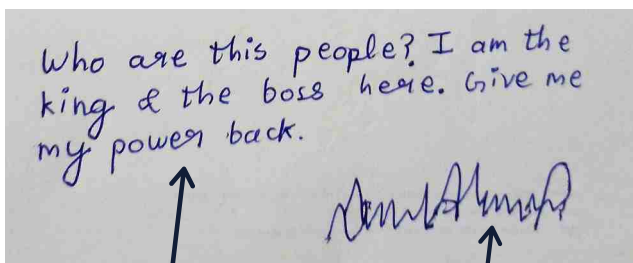 Who are this people? I am the
king & the boss here. Give me
my power back.